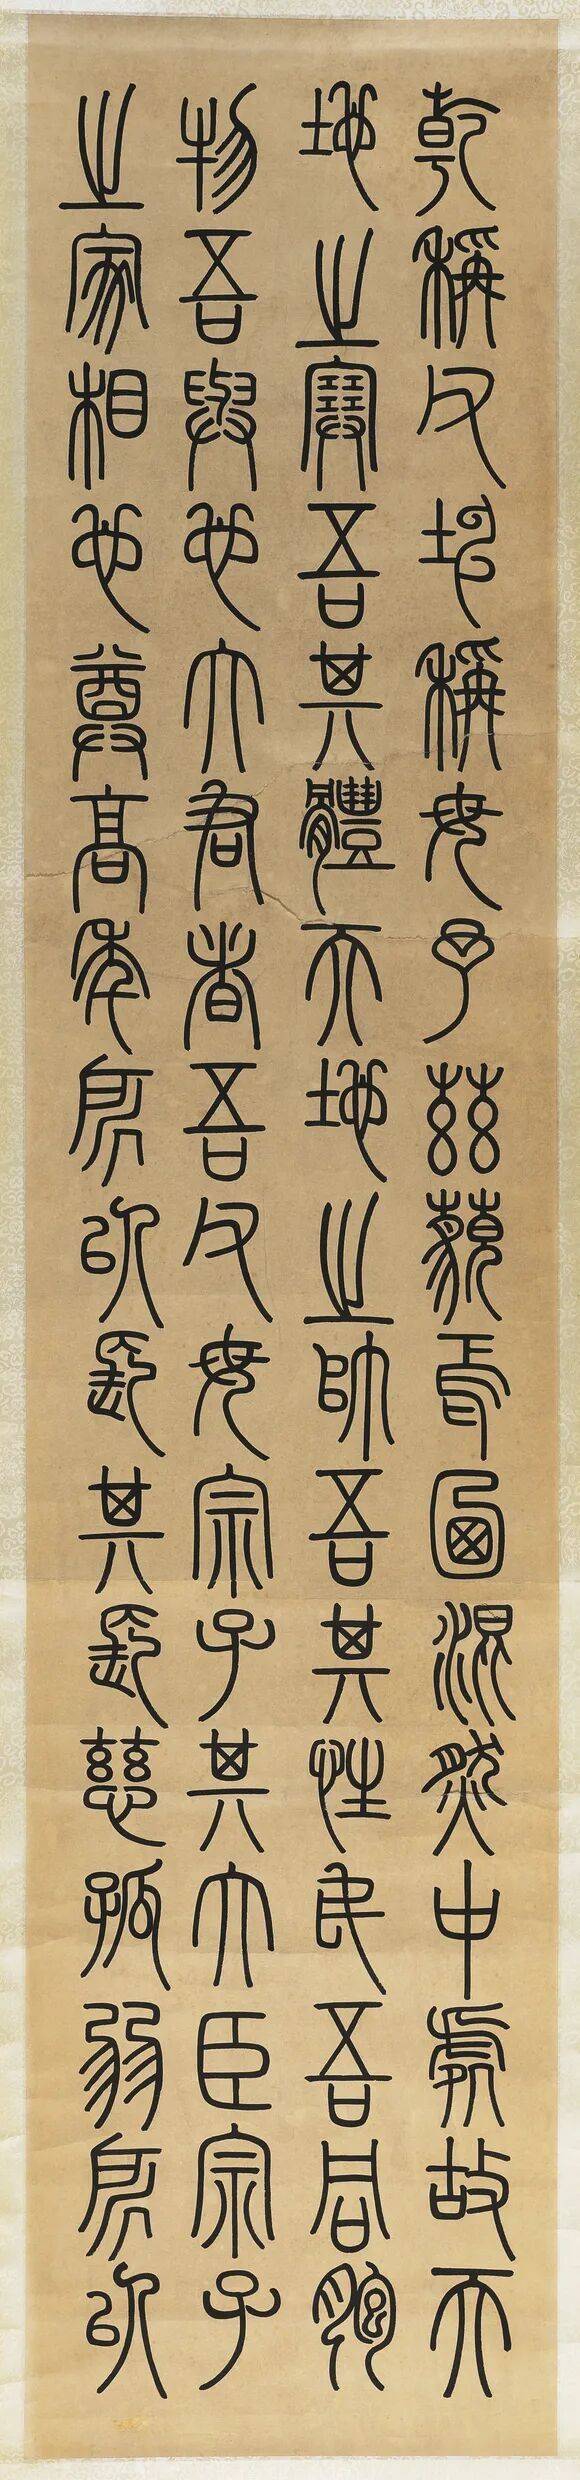 乾稱父坤稱母予茲藐焉乃渾然中處故天
地之塞吾其體天地之帥吾其性民吾同胞
物吾與也大君者吾父母宗子其大臣宗子
之家相也尊高年所以長其長慈孤弱所以